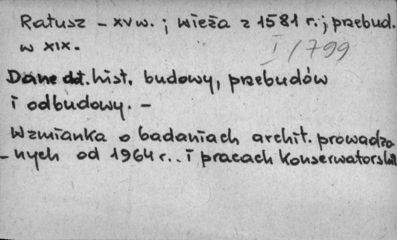 Ratusz – XV w. ; wieża z 1581 r. ; przebud.
w XIX.
I/799
Dane dot. hist. budowy, przebudów
i odbudowy. –
Wzmianka o badaniach archit. prowadzo
–nych od 1964 r.. i pracach konserwatorski